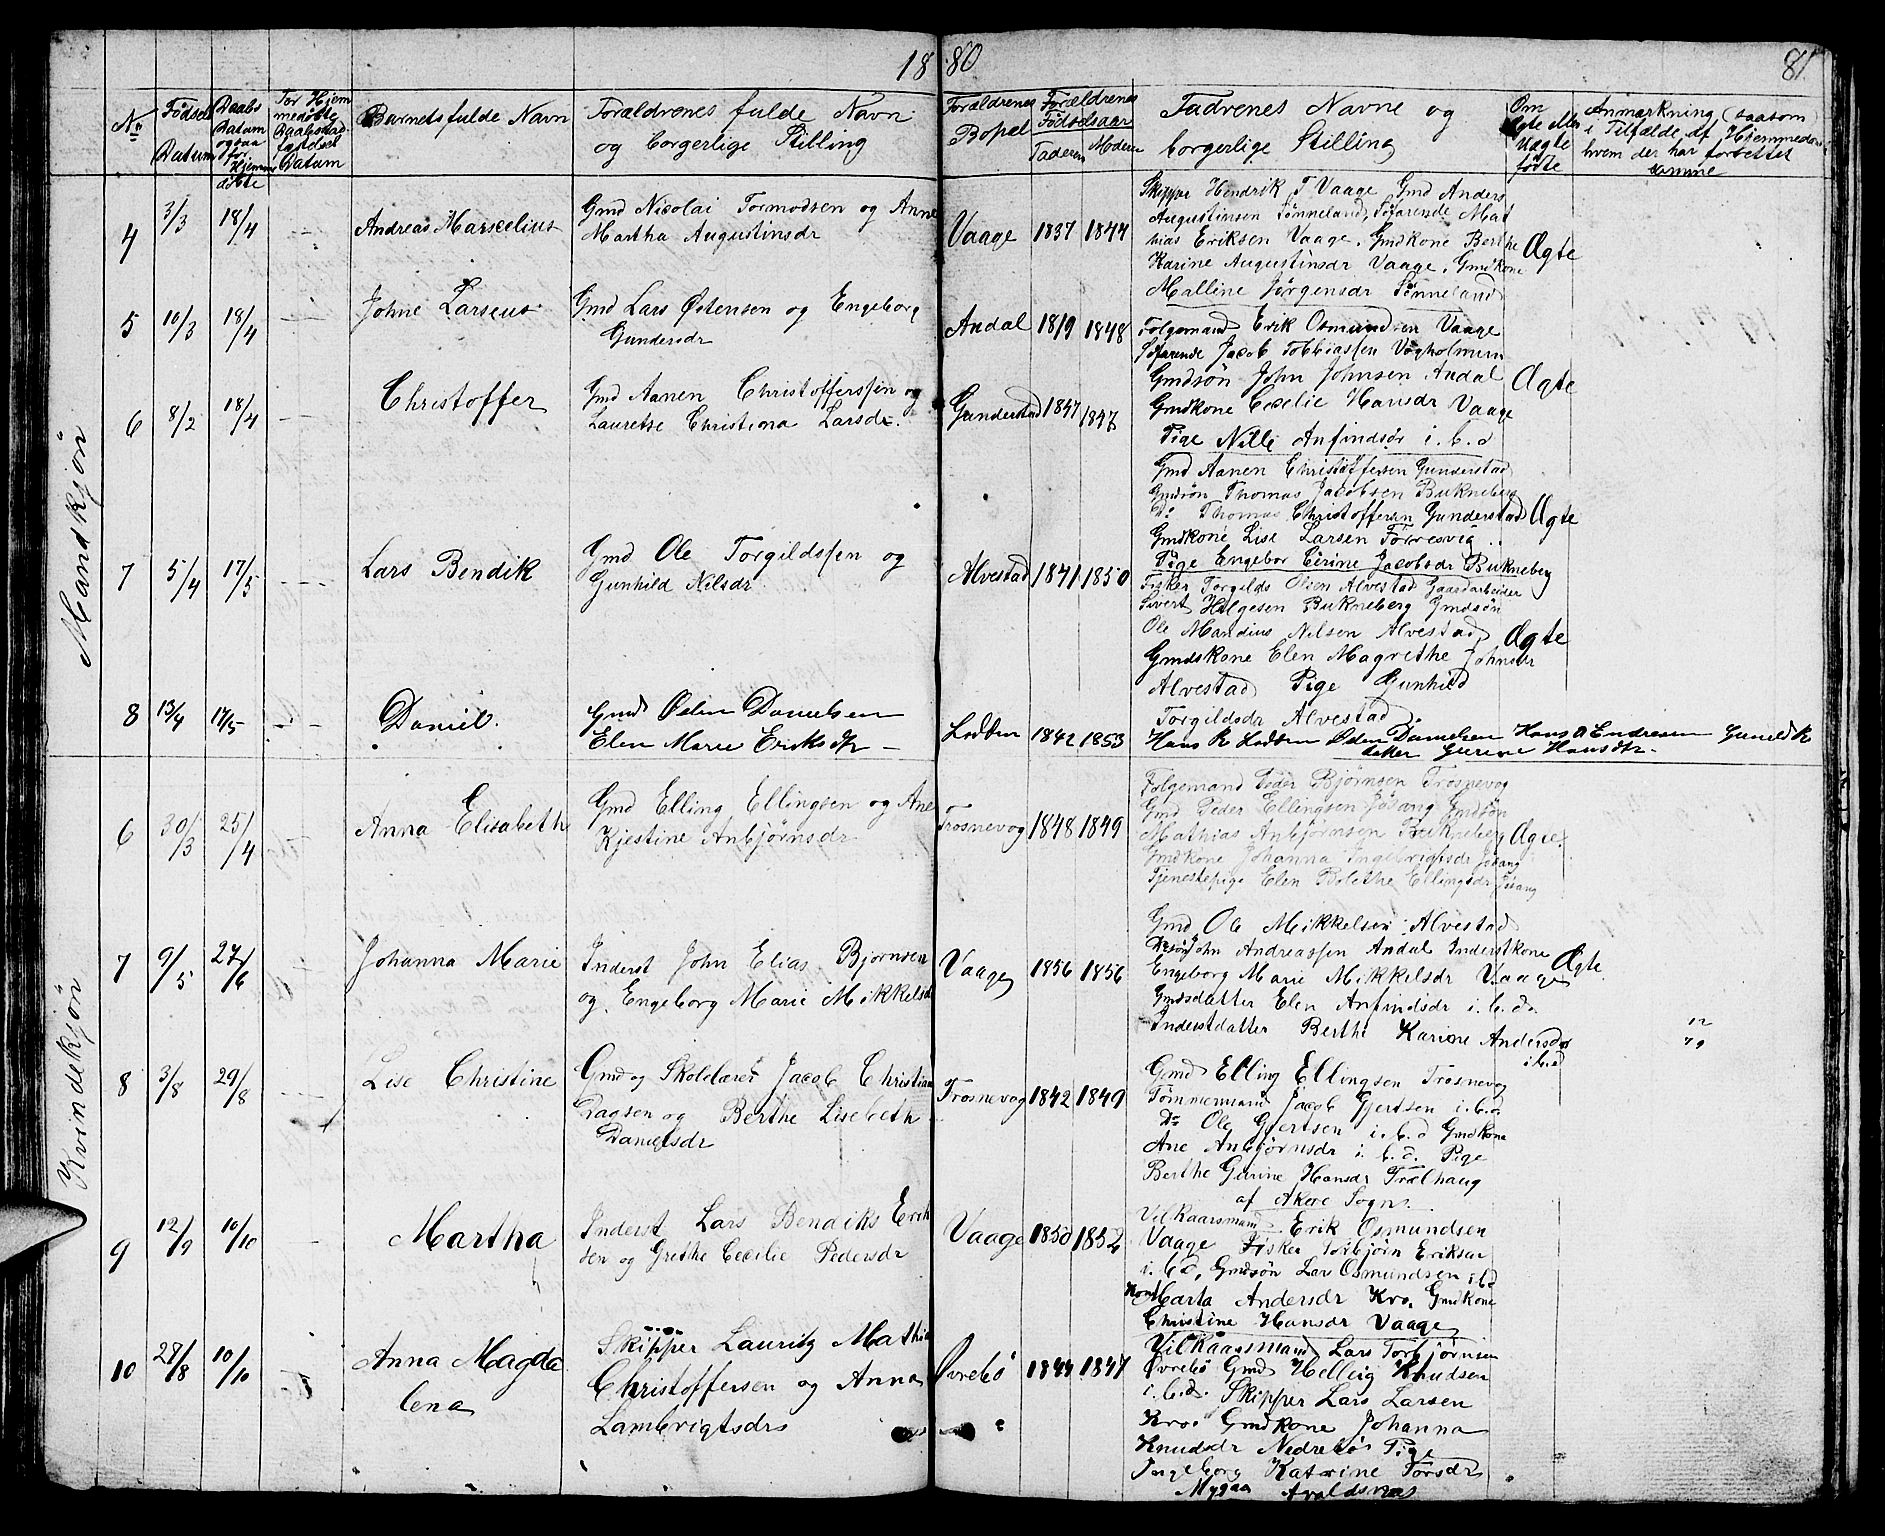 18 80
81
No
Fødsel Datum
Daabs Datum ogsaa for Hjemme døbte
For Hjem medøbte Daabsstad fæstelse Datum
Barnets fulde Navn
Forældrenes fulde Navn og borgerlige Stilling
Forældrenes Bopel
Forældrenes Fødselsaar
Faderen Moderen
Fadrenes Navne og borgerlige Stilling
Om Ægte eller Uægte fødte
Anmærkning (saasom i Tilfælde af Hjemmedaab hvem der har forrettet samme
Mandkjøn
4 3/3 18/4 Andreas Marselius
Gmd Nicolai Tormodsen og Anne
Martha Augustinsdr
Vaage 1837 1844
Skipper Hendrik T Vaage, Gmd Anders
Augustinsen Sønneland, Søfarende Mat
hias Eriksen Vaage, Gmdkone Berthe
Karine Augustinsdr Vaage, Gmdkone
Malline Jørgensdr Sønneland
Ægte
5 10/3 18/4 Johne Larseus
Gmd Lars Østensen og Engeborg
Gundersdr
Andal 1819 1848
Folgemand Erik Osmundsen Vaage
Søfarende Jacob Tobbiassen Vogholmen
Gmdsøn John Johnsen Andal
Gmdkone Cecelie Hansdr Vaage
Pige Nille Anfindsdr i.b.d
Ægte
6 8/2 18/4 Christoffer
Gmd Aanen Christofferssen og
Lauretse Christina Larsdr.
Gunderstad 1847 1847
Gmd Aanen Christoffersen Gunderstad
Gmdsøn Thomas Jacobsen Bukneberg
Do Thomas Christoffersen Gunderstad
Gmdkone Lise Larsen Førresvig
Pige Engebor Cerine Jacobsdr Bukneberg
Ægte
7 5/4 17/5 Lars Bendik
Gmd Ole Torgildssen og
Gunhild Nilsdr
Alvestad 1841 1850
Fisker Torgilds Olsen Alvestad Gaardarbeider
Sivert Helgesen Bukneberg Gmdsøn
Ole Mandius Nilsen Alvestad
Gmdskone Elen Magrethe Johnsdr
Alvestad Pige Gunhild
Torgildsdr Alvestad
Ægte
8 13/4 17/5 Daniel.
Gmd Oden Danielsen
Elen Marie Eriksdtr
Lodden 1842 1853
Hans R Lodden Oden Danielsen Hans A Endresen Gunild K
datter Gurine Hansdtr
Kvindekjøn
6 30/3 25/4 Anna Elisabeth
Gmd Elling Ellingsen og Ane
Kjestine Anbjørnsdr
Trosnevog 1848 1849
Folgemand Peder Bjørnsen Trosnevog
Gmd Peder Ellingsen Jøsang Gmdsøn
Mathias Anbjørnsen Bukneberg
Gmdkone Johanna Ingebrigtsdr Jøsang
Tjenestepige Elen Bolethe Ellingsdr Jøsang
Ægte
7 9/5 27/6 Johanna Marie
Inderst John Elias Bjørnsen
og Engeborg Marie Mikkelsdr
Vaage 1856 1856
Gmd Ole Mikkelsen Alvestad
Do søn John Andreassen Andal Inderstkone
Engeborg Marie Mikkelsdr Vaage
Gmdsdatter Elen Anfindsdr i.b.d.
Inderstdatter Berthe Karine Andersdr
i.b.d
Ægte
8 3/8 29/8 Lise Christine
Gmd og Skolelærer Jacob Christian
Daasen og Berthe Lisebeth
Danielsdr
Trosnevog 1842 1849
Gmd Elling Ellingsen Trosnevog
Tømmermand Jacob Gjertsen i.b.d
Do Ole Gjertsen i.b.d Gmdkone
Ane Anbjørnsdr i.b.d. Pige
Berthe Gurine Hansdr Trælhaug
af Akre Sogn.
9 12/9 10/10 Martha
Inderst Lars Bendiks Erik
sen og Grethe Cecilie Pedersdr
Vaage 1850 1852
Vilkaarsmand Erik Osmundsen
Vaage Fisker Torbjørn Eriksen
i.b.d, Gmdsøn Lars Osmundsen i.b.d
Kone Marta Andersdr Kro. Gmdkone
Christine Hansdr Vaage
10 28/8 10/10 Anna Magda
lena
Skipper Lauritz Mathia
Christoffersen og Anna
Lambrigtsdr
Øvrebø 1844 1847
Vilkaarsmand Lars Torbjørnsen
Øvrebø Gmd Helleig Knudsen
i.b.d. Skipper Lars Larsen
Kro. Gmdkone Johanna
Knudsdr Nedrebø Pige
Ingeborg Katrine Torsdr
Mygaa Avaldsnæs